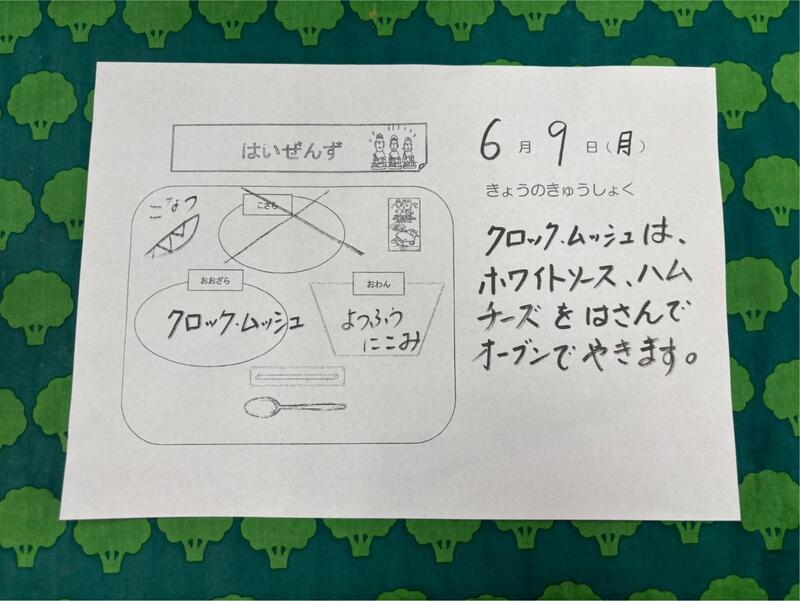 はいぜんず
こなつ
こざら
おおざら
クロック・ムッシュ
おわん
ようふう
にこみ
6月9日(月)
きょうのきゅうしょく
クロック・ムッシュは、
ホワイトソース、ハム
チーズをはさんで
オーブンでやきます。